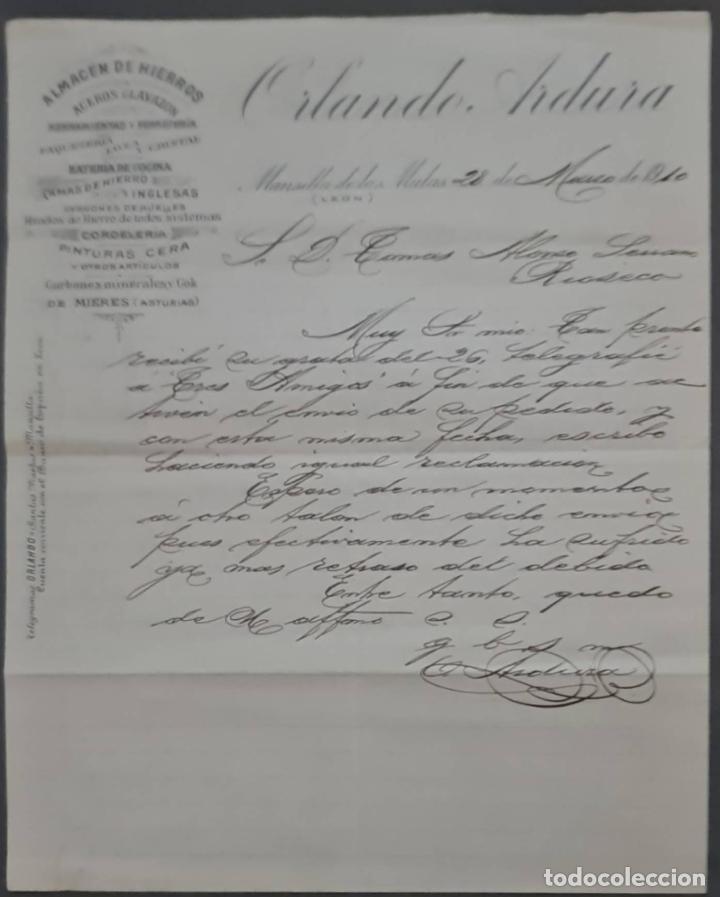 ALMACEN DE HIERROS
ACEROS CLAVAZON
HERRAMIENTAS Y FERRETERIA
PAQUETERIA LOZA Y CRISTAL
BATERIA DE COCINA
CAMAS DE HIERRO INGLESAS
JERGONES DE MUELLES
Arados de Hierro de todos sistemas
CORDELERIA
PINTURAS CERA
Y OTROS ARTICULOS
Carbones minerales y Cok
DE MIERES (ASTURIAS)
Telegramas ORLANDO
Cuenta corriente con el Banco de España en León
Orlando Ardura
Mansilla de las Mulas 28 de Marzo de 1910
(LEON)
S. D. Tomas Alonso
Rioseco
Muy Sr mio: Tan pronto
recibí su grata del 26, telegrafié
a "Tres Amigos" á fin de que ac
tiven el envio de su pedido, y
con esta misma fecha, escribo
haciendo igual reclamacion
Espero de un momento
á otro talon de dicho envio
pues efectivamente ha sufrido
ya mas retraso del debido
Entre tanto, quedo
de V affmo s. s.
q b s m
O Ardura
todocoleccion.net